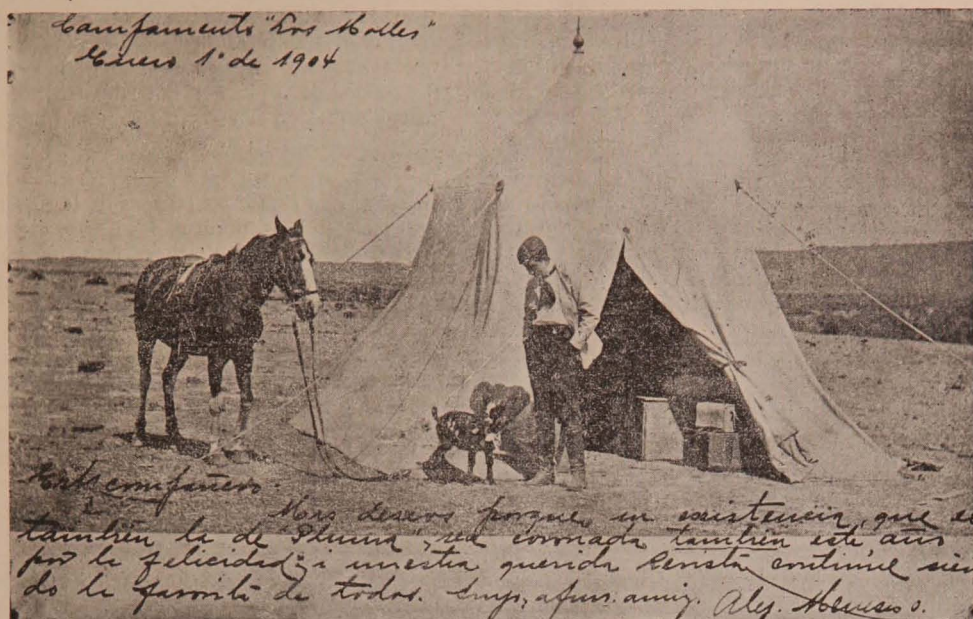 Campamento "Los Molles"
Enero 1º de 1904
compañero.
Mis deseos porque, su existencia, que es
también la de Pluma, sea coronada también este año
por la felicidad, i nuestra querida Revista continúe sien
do la favorita de todos. Suyo, afmo. amig. Alej. Meneses O.